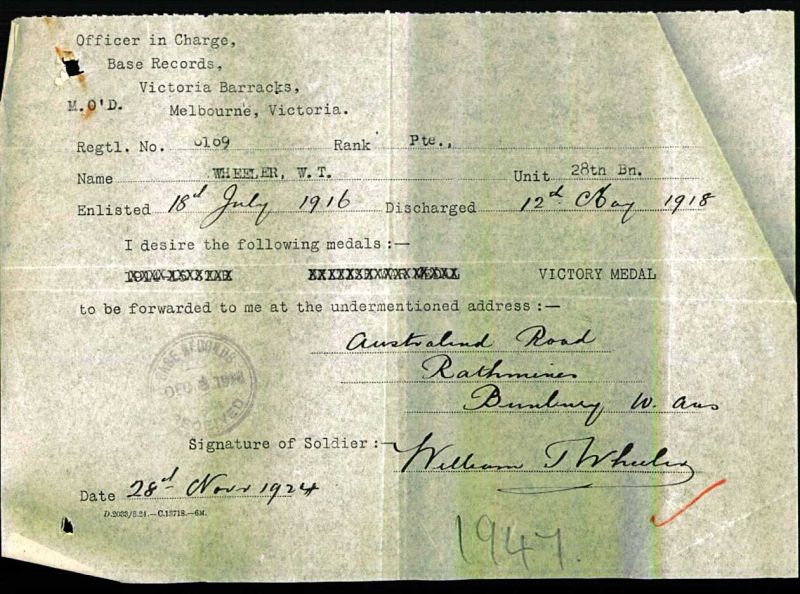 Officer in Charge,
Base Records,
Victoria Barracks,
M.O'D. Melbourne, Victoria.
Regtl. No. 6109 Rank Pte.,
Name WHEELER, W.T. Unit 28th Bn.
Enlisted 18th July 1916 Discharged 12th May 1918
I desire the following medals :—
VICTORY MEDAL
to be forwarded to me at the undermentioned address :—
Australind Road
Rathmines
Bunbury W. Aus
BASE RECORDS
Signature of Soldier :— William T Wheeler
Date 28th Novr 1924
D.2033/8.24.—C.13718.—6M.
1947.